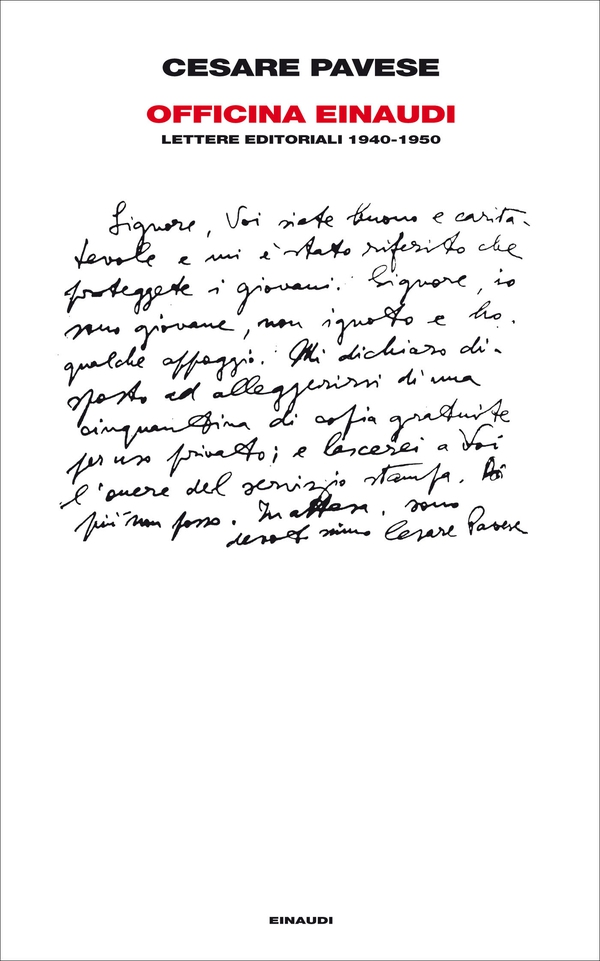 CESARE PAVESE
OFFICINA EINAUDI
LETTERE EDITORIALI 1940-1950
Signore, Voi siete buono e carita-
tevole e mi è stato riferito che
proteggete i giovani. Signore, io
sono giovane, non ignoto e ho
qualche appoggio. Mi dichiaro di-
sposto ad alleggerirvi di una
cinquantina di copia gratuite
per uso privato; e lascerei a Voi
l'onere del servizio stampa. Di
più non posso. In attesa, sono
devotissimo Cesare Pavese
EINAUDI